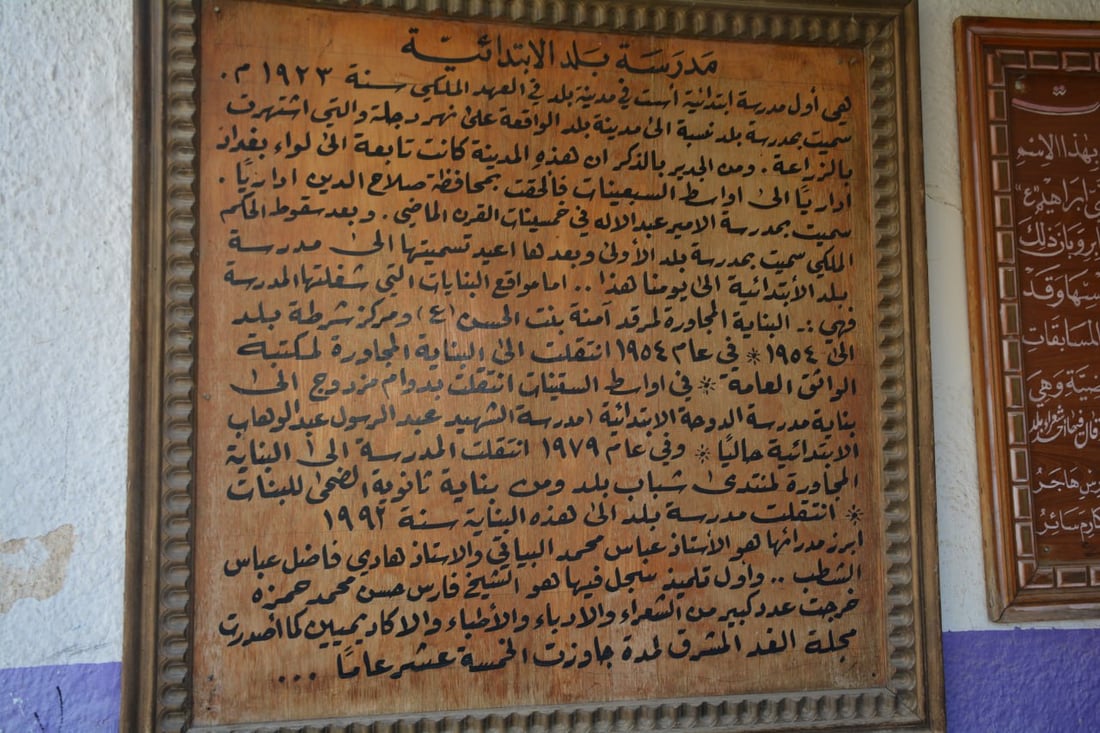 مَدرَسَة بَلَد الابتدائيّة
هي أول مدرسة ابتدائية أسست في مدينة بلد في العهد الملكي سنة ١٩٢٣ م .
سميت بمدرسة بلد نسبة الى مدينة بلد الواقعة على نهر دجلة والتي اشتهرت
بالزراعة . ومن الجدير بالذكر ان هذه المدينة كانت تابعة الى لواء بغداد
ادارياً الى اواسط السبعينات فألحقت بمحافظة صلاح الدين ادارياً .
سميت بمدرسة الامير عبد الاله في خمسينات القرن الماضي . وبعد سقوط الحكم
الملكي سميت بمدرسة بلد الأولى وبعدها اعيد تسميتها الى مدرسة
بلد الأبتدائية الى يومنا هذا .. اما مواقع البنايات التي شغلتها المدرسة
فهي :. البناية المجاورة لمرقد آمنة بنت الحسن (ع) ومركز شرطة بلد
الى ١٩٥٤ * في عام ١٩٥٤ انتقلت الى البناية المجاورة لمكتبة
الواثق العامة * في اواسط الستينات انتقلت بدوام مزدوج الى
بناية مدرسة الدوحة الابتدائية (مدرسة الشهيد عبد الرسول عبد الوهاب
الابتدائية حالياً * وفي عام ١٩٧٩ انتقلت المدرسة الى البناية
المجاورة لمنتدى شباب بلد ومن بناية ثانوية الضحى للبنات
* انتقلت مدرسة بلد الى هذه البناية سنة ١٩٩٢
ابرز مدرائها هو الأستاذ عباس محمد البياتي والاستاذ هادي فاضل عباس
الشطب .. وأول تلميذ سجل فيها هو الشيخ فارس حسن محمد حمزة
خرجت عدد كبير من الشعراء والادباء والأطباء والاكاديميين كما أصدرت
مجلة الغد المشرق لمدة جاوزت الخمسة عشر عاماً ...
بهذا الاسم
ابراهيم "ع"
المسابقات